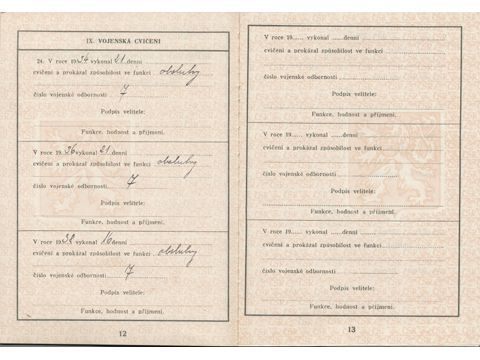 IX. VOJENSKÁ CVIČENÍ
24. V roce 1934 vykonal 21 denní
cvičení a prokázal způsobilost ve funkci obsluhy
číslo vojenské odbornosti 7
Podpis velitele:
Funkce, hodnost a příjmení.
V roce 1936 vykonal 21 denní
cvičení a prokázal způsobilost ve funkci obsluhy
číslo vojenské odbornosti 7
Podpis velitele:
Funkce, hodnost a příjmení.
V roce 1938 vykonal 16 denní
cvičení a prokázal způsobilost ve funkci obsluhy
číslo vojenské odbornosti 7
Podpis velitele:
Funkce, hodnost a příjmení.
12
V roce 19...... vykonal ...... denní
cvičení a prokázal způsobilost ve funkci
číslo vojenské odbornosti
Podpis velitele:
Funkce, hodnost a příjmení.
V roce 19...... vykonal ...... denní
cvičení a prokázal způsobilost ve funkci
číslo vojenské odbornosti
Podpis velitele:
Funkce, hodnost a příjmení.
V roce 19...... vykonal ...... denní
cvičení a prokázal způsobilost ve funkci
číslo vojenské odbornosti
Podpis velitele:
Funkce, hodnost a příjmení.
13